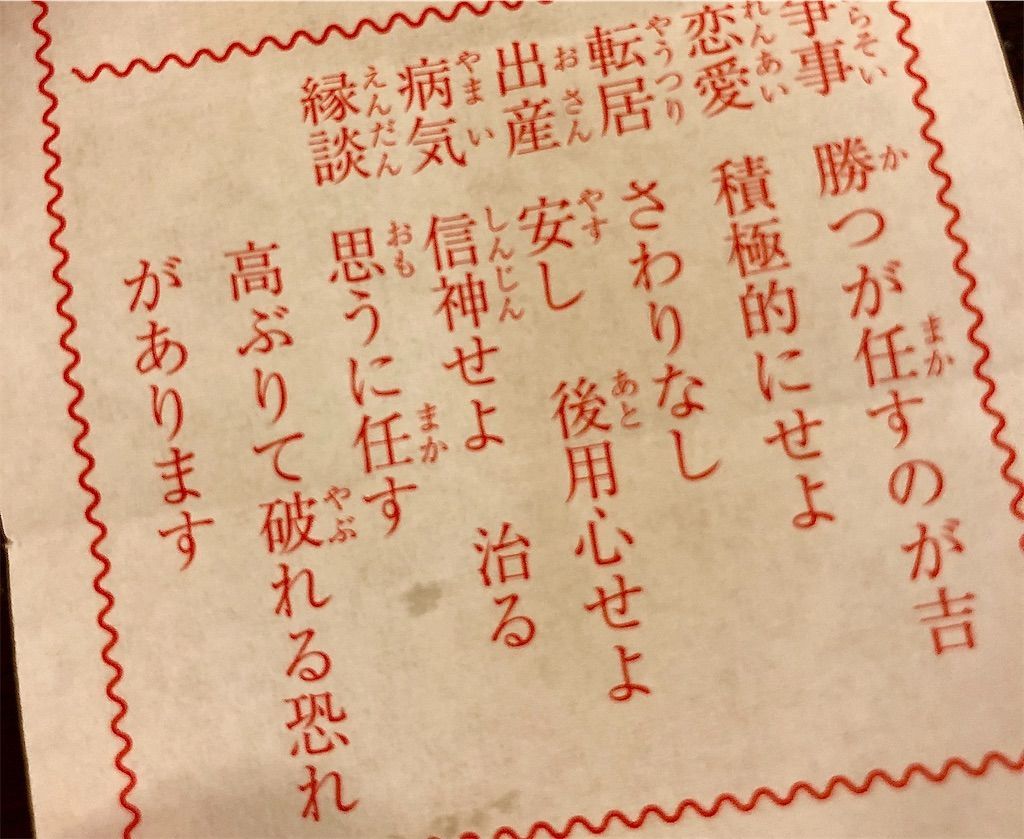 争事 らそい 勝つが任すのが吉 か まか
恋愛 れんあい 積極的にせよ
転居 やうつり さわりなし
出産 おさん 安し 後用心せよ やす あと
病気 やまい 信神せよ 治る しんじん
縁談 えんだん 思うに任す おも まか
高ぶりて破れる恐れ やぶ
があります